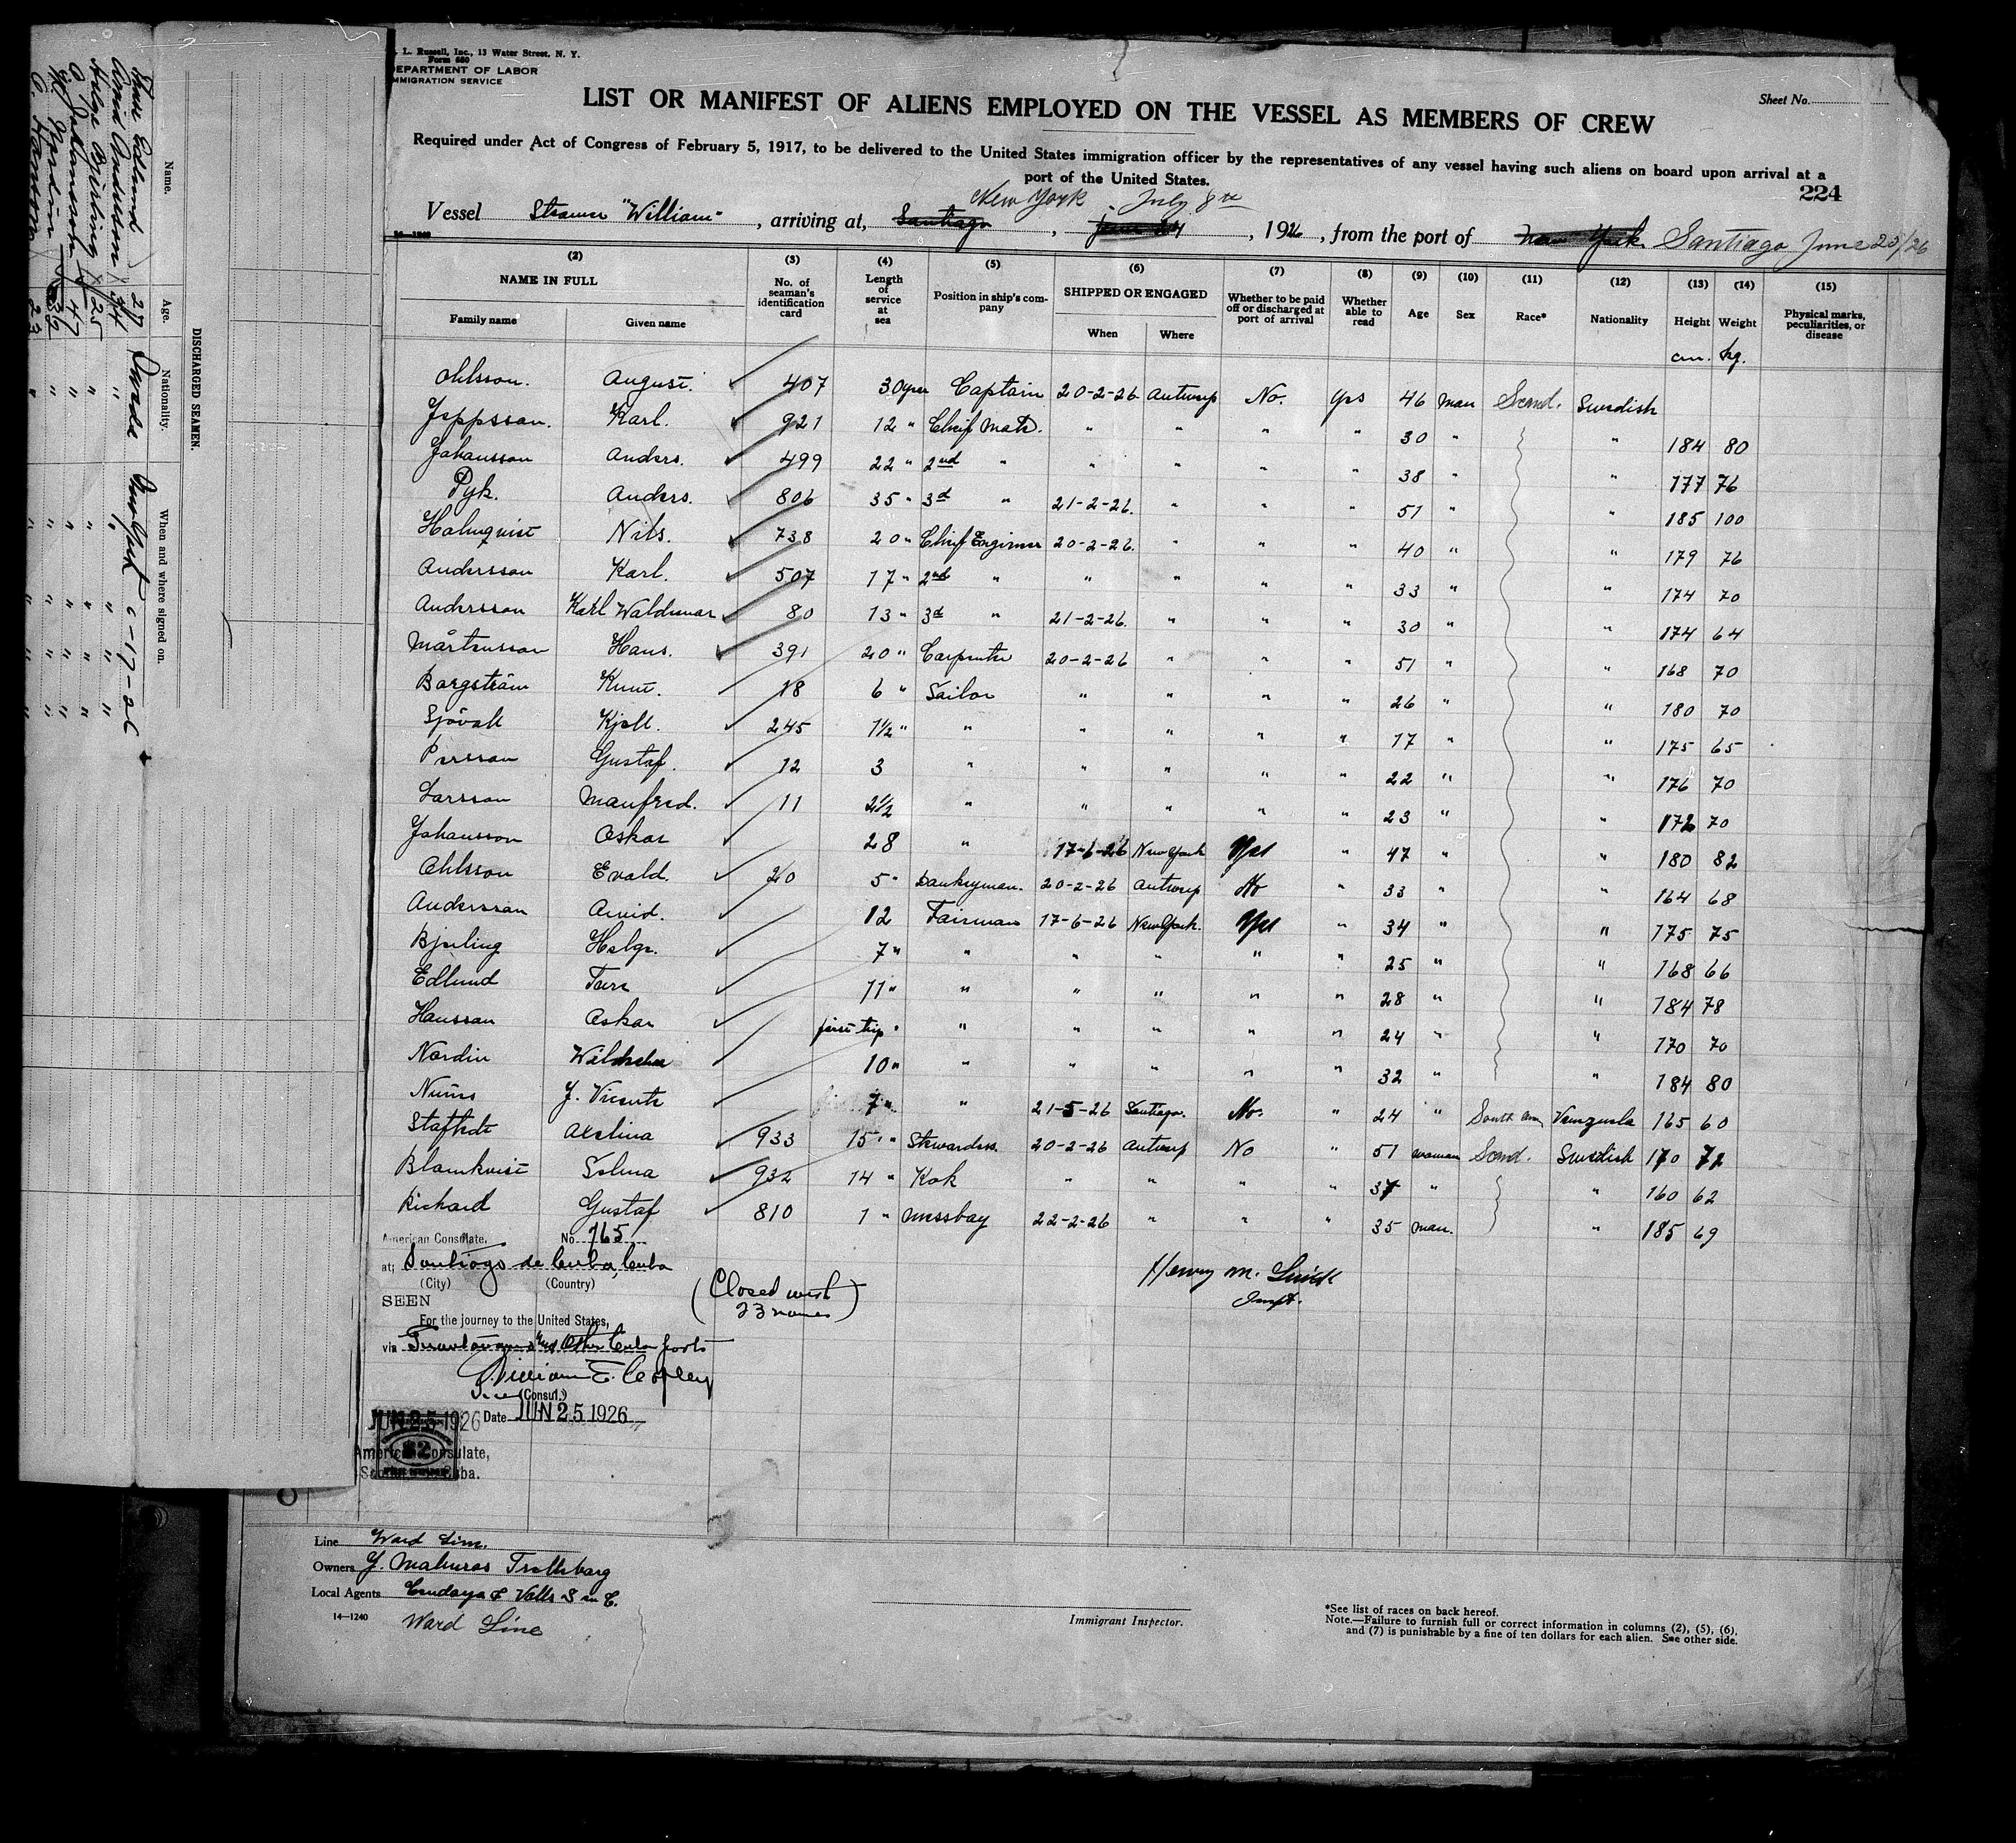 L. Russell, Inc., 13 Water Street, N. Y.
Form 680
DEPARTMENT OF LABOR
IMMIGRATION SERVICE
Sheet No.
LIST OR MANIFEST OF ALIENS EMPLOYED ON THE VESSEL AS MEMBERS OF CREW
Required under Act of Congress of February 5, 1917, to be delivered to the United States immigration officer by the representatives of any vessel having such aliens on board upon arrival at a
port of the United States.
224
New York July 8th
Vessel Steamer "William" , arriving at, Santiago , June 24 , 1926 , from the port of New York Santiago June 25/26
14—1240
(2) (3) (4) (5) (6) (7) (8) (9) (10) (11) (12) (13) (14) (15)
NAME IN FULL No. of seaman's identification card Length of service at sea Position in ship's company SHIPPED OR ENGAGED Whether to be paid off or discharged at port of arrival Whether able to read Age Sex Race* Nationality Height Weight Physical marks, peculiarities, or disease
Family name Given name When Where
cm. kg.
Ohlsson. August. 407 30 yrs Captain 20-2-26 Antwerp No. Yes 46 man Scand. Swedish
Jeppsson. Karl. 921 12 " Chief Mate. " " " " 30 " " 184 80
Johansson Anders. 499 22 " 2nd " " " " " 38 " " 177 76
Pyk. Anders. 806 35 " 3d " 21-2-26. " " " 51 " " 185 100
Holmqvist Nils. 738 20 " Chief Engineer 20-2-26. " " " 40 " " 179 76
Andersson Karl. 507 17 " 2nd " " " " " 33 " " 174 70
Andersson Karl Waldemar 80 13 " 3d " 21-2-26. " " " 30 " " 174 64
Mårtensson Hans. 391 20 " Carpenter 20-2-26 " " " 51 " " 168 70
Borgström Knut. 18 6 " Sailor " " " " 26 " " 180 70
Sjövall Kjell. 245 1½ " " " " " " 17 " " 175 65
Persson Gustaf. 12 3 " " " " " 22 " " 176 70
Larsson Manfred. 11 2½ " " " " " 23 " " 172 70
Johansson Oskar 28 " 17-6-26 New York Yes " 47 " " 180 82
Ohlsson Evald. 20 5 " Donkeyman. 20-2-26 Antwerp No " 33 " " 164 68
Andersson Arvid. 12 Fairman 17-6-26 New York. Yes " 34 " " 175 75
Bjerling Helge. 7 " " " " " " 25 " " 168 66
Edlund Ture 11 " " " " " " 28 " " 184 78
Hansson Oskar first trip " " " " " " 24 " " 170 70
Nordin 10 " " " " " " 32 " " 184 80
J. Vicente 7 " " 21-5-26 Santiago. No. " 24 " South Am Venzuela 165 60
Axelina 933 15 " Stewardess. 20-2-26 Antwerp No " 51 woman Scand. Swedish 170 72
Blomkvist Selma 932 14 " Kok " " " " 37 " " 160 62
Richard Gustaf 810 1 " Messboy 22-2-26 " " " 35 man. " 185 69
American Consulate, No. 765
at; Santiago de Cuba, Cuba
(City) (Country)
SEEN
For the journey to the United States,
via and other Cuba ports
William E. Copley
Vice (Consul.)
Date JUN 25 1926
(Closed with
23 names)
Henry M.
Inspt.
JUN 25 1926
$2
American Consulate,
Cuba.
Line Ward Line.
Owners J. Malmros Trelleborg
Local Agents & Valls S en C.
14—1240 Ward Line
Immigrant Inspector.
*See list of races on back hereof.
Note.—Failure to furnish full or correct information in columns (2), (5), (6),
and (7) is punishable by a fine of ten dollars for each alien. See other side.
DISCHARGED SEAMEN.
Name. Age. Nationality. When and where signed on.
Ture Edlund 28 Swede New York 6-17-26
Arvid Andersson 34 " " "
Helge Bjerling 25 " " "
O. Johansson 47 " " "
Nordin 32 " " "
O. Hansson 23 " " "